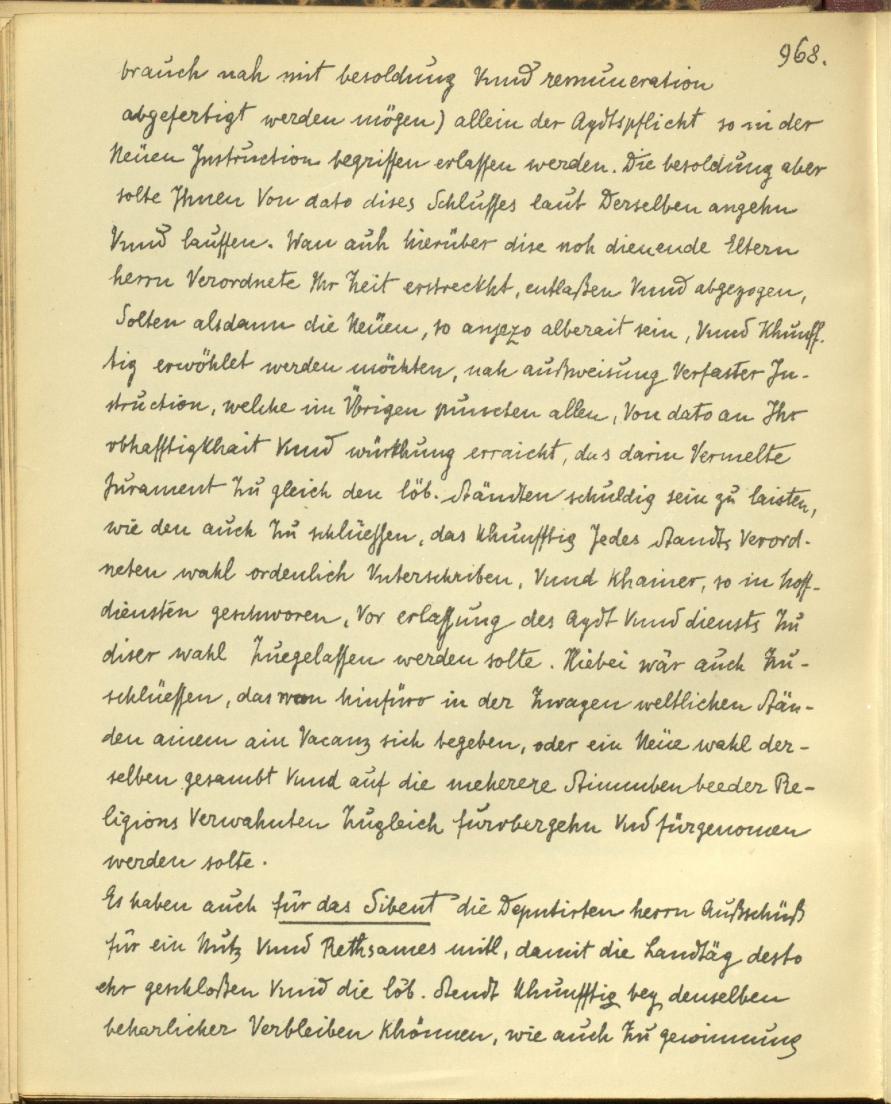 968.
brauch nah mit besoldung Vnnd remuneration
abgefertigt werden mögen) allein der Aydtspflicht so in der
Neüen Instruction begriffen erlassen werden. Die besoldung aber
solte Ihnen Von dato dises Schlusses laut Derselben angehn
Vnnd lauffen. Wan auh hierüber dise noh dienende Eltern
herrn Verordnete Ihr Zeit erstreckht, entlaßen Vnnd abgezogen,
Solten alsdann die Neüen, so anjezo alberait sein, Vnnd Khunff.
tig erwöhlet werden möchten, nah außweisung Verfaster In-
struction, welche im Übrigen puncten allen, Von dato an Ihr
obhafftigKhait Vnnd würkhung erraicht, das darin Vermelte
Jurament Zu gleich den löb. Ständten schuldig sein zu laisten,
wie den auch Zu schlüessen, das Khunfftig Jedes Standts Verord-
neten wahl ordenlich Vnterschriben, Vnnd Khainer, so in hoff-
diensten geschworen, Vor erlassung des Aydt Vnnd diensts Zu
diser wahl Zuegelassen werden solte. Hiebei wär auch Zu-
schlüessen, das wan hinfüro in der Zwayen weltlichen Stän-
den ainem ain Vacanz sich begeben, oder ein Neüe wahl der-
selben gesambt Vnnd auf die meherere Stimmben beeder Re-
ligions Verwahnten Zugleich fürobergehn Vnd fürgenomen
werden solte.
Es haben auch für das Sibent die Deputirten herrn Außschüß
für ein Nutz Vnnd Rethsames mitl, damit die Landtäg desto
ehr geschloßen Vnnd die löb. Stendt Khunfftig bey denselben
beharlicher Verbleiben Khönnen, wie auch Zu gewinnung